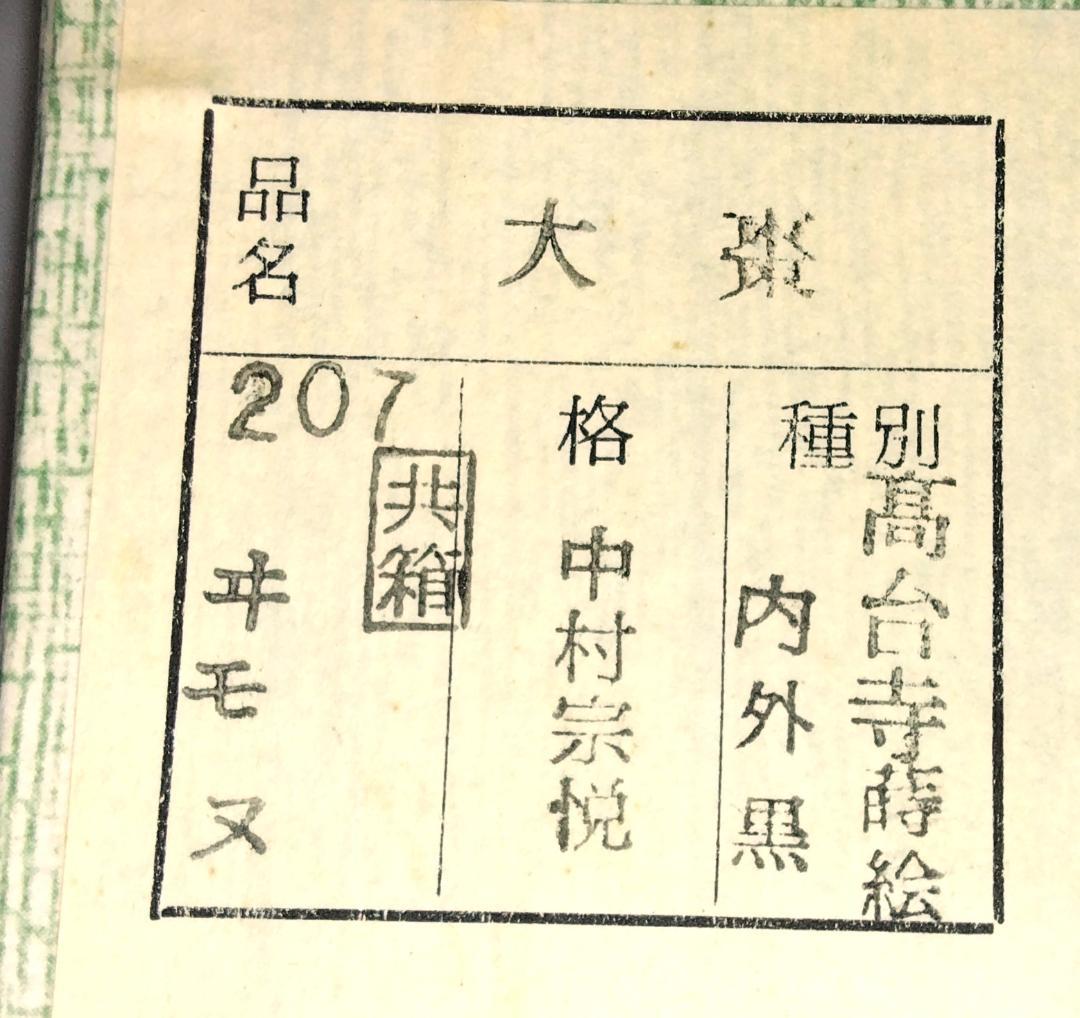 品名
大棗
種別
高台寺蒔絵
内外黒
格
中村宗悦
207
共箱
ヰモヌ